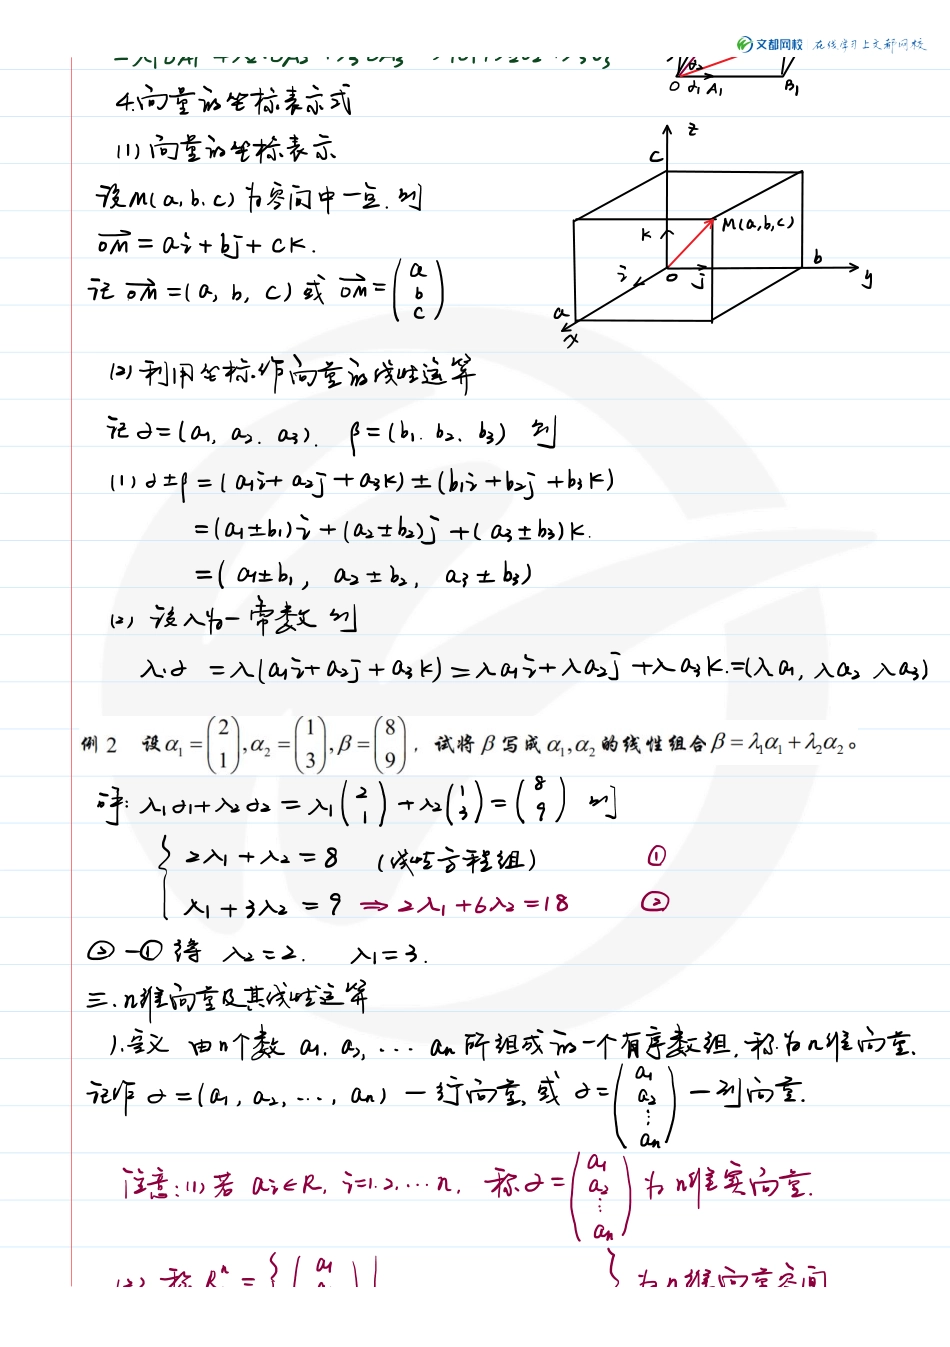 文都网校 在线学习上文都网校
O α₁ A₁ B₁
4.向量的坐标表示式
(1)向量的坐标表示
设M(a,b,c)为空间中一点,则
OM = ai + bj + ck.
记 OM =(a, b, c)或 OM = (a b c)
z
c
M(a,b,c)
k
i o j b y
a
x
(2)利用坐标作向量的线性运算
记α=(a₁, a₂, a₃), β=(b₁, b₂, b₃) 则
(1) α±β = (a₁i + a₂j + a₃k) ± (b₁i + b₂j + b₃k)
=(a₁±b₁)i + (a₂±b₂)j + (a₃±b₃)k.
=(a₁±b₁, a₂±b₂, a₃±b₃)
(2) 设λ为一常数 则
λ·α = λ(a₁i + a₂j + a₃k) = λa₁i + λa₂j + λa₃k.=(λa₁, λa₂ λa₃)
例 2 设α₁ = (2 1), α₂ = (1 3), β = (8 9), 试将 β 写成 α₁,α₂ 的线性组合 β = λ₁α₁ + λ₂α₂。
解: λ₁α₁+λ₂α₂ = λ₁(2 1) + λ₂(1 3) = (8 9) 则
{ 2λ₁ + λ₂ = 8 (线性方程组) ①
λ₁ + 3λ₂ = 9 ⇒ 2λ₁ + 6λ₂ = 18 ②
②-①得 λ₂=2. λ₁=3.
三.n维向量及其线性运算
1.定义 由n个数 a₁, a₂, ... aₙ 所组成的一个有序数组,称为n维向量.
记作 α=(a₁, a₂, ..., aₙ) — 行向量,或 α=(a₁ a₂ ⋮ aₙ) — 列向量.
注意:(1)若 aᵢ∈R, i=1.2....n, 称α=(a₁ a₂ ⋮ aₙ)为n维实向量.
(2) 称 Rⁿ = { (a₁ } 为n维向量空间